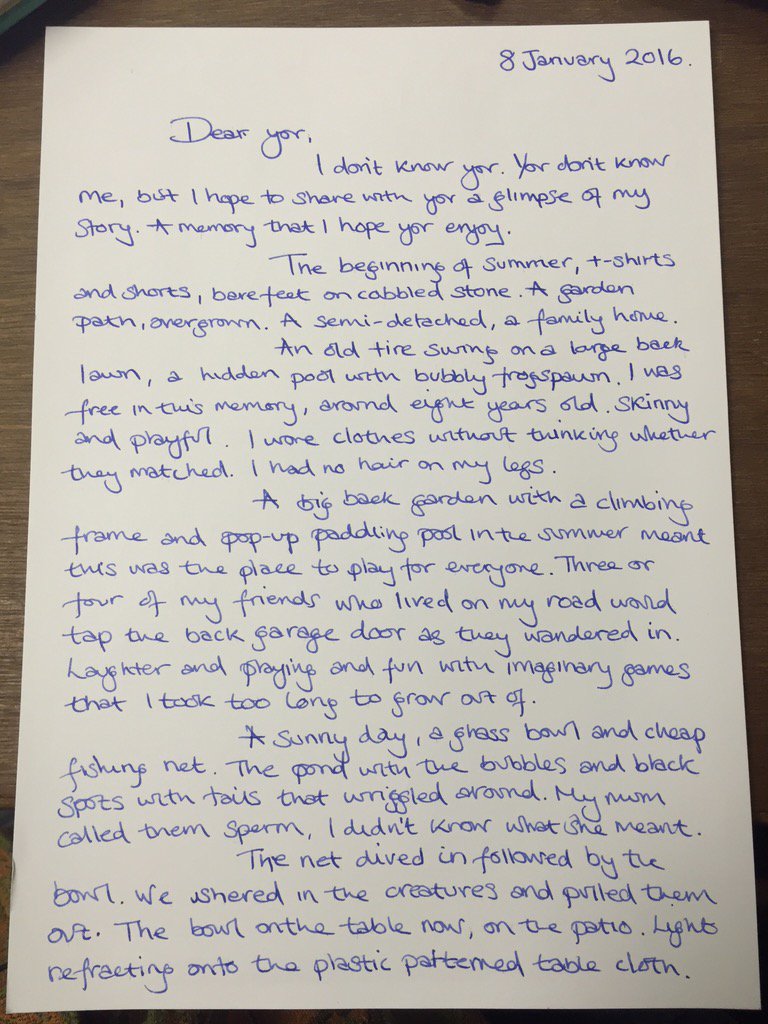 8 January 2016.
Dear you,
I don't know you. You don't know
me, but I hope to share with you a glimpse of my
story. A memory that I hope you enjoy.
The beginning of summer, t-shirts
and shorts, bare feet on cobbled stone. A garden
path, overgrown. A semi-detached, a family home.
An old tire swing on a large back
lawn, a hidden pool with bubbly frogspawn. I was
free in this memory, around eight years old. Skinny
and playful. I wore clothes without thinking whether
they matched. I had no hair on my legs.
A big back garden with a climbing
frame and pop-up paddling pool in the summer meant
this was the place to play for everyone. Three or
four of my friends who lived on my road would
tap the back garage door as they wandered in.
Laughter and playing and fun with imaginary games
that I took too long to grow out of.
A sunny day, a glass bowl and cheap
fishing net. The pond with the bubbles and black
spots with tails that wriggled around. My mum
called them sperm, I didn't know what she meant.
The net dived in followed by the
bowl. We ushered in the creatures and pulled them
out. The bowl on the table now, on the patio. Lights
refracting onto the plastic patterned table cloth.